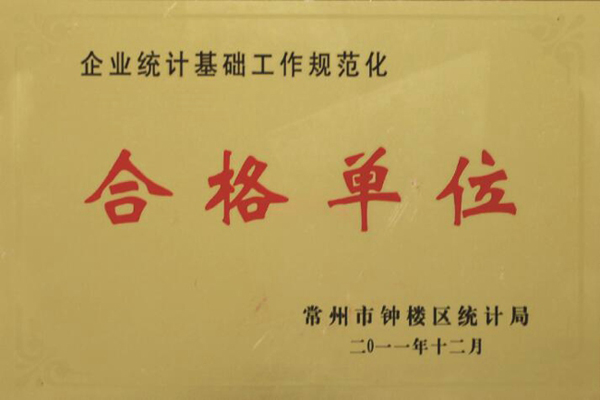 企业统计基础工作规范化
合格单位
常州市钟楼区统计局
二0一一年十二月